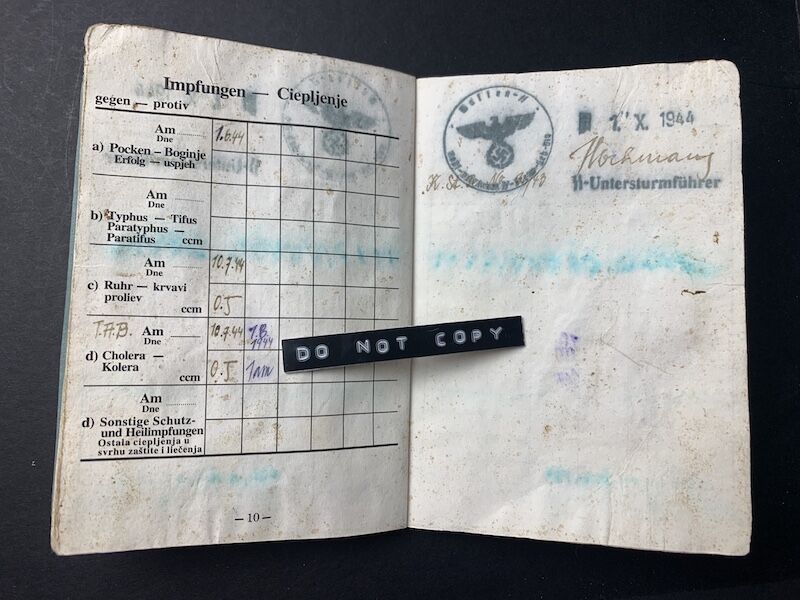 Impfungen — Ciepljenje
gegen — protiv
Am
Dne
1.6.44
a) Pocken – Boginje
Erfolg – uspjeh
Am
Dne
b) Typhus — Tifus
Paratyphus —
Paratifus
ccm
Am
Dne
10.7.44
c) Ruhr — krvavi
proliev
ccm
0.5
T.A.B.
Am
Dne
10.7.44
1944
d) Cholera —
Kolera
ccm
0.5
Am
Dne
d) Sonstige Schutz-
und Heilimpfungen
Ostala ciepljenja u
svrhu zaštite i liečenja
— 10 —
Waffen-SS
1. X. 1944
SS-Untersturmführer
DO NOT COPY